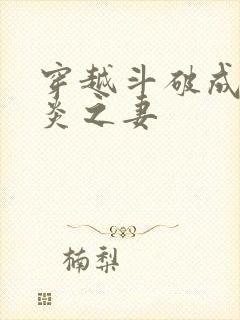 穿越斗破成
炎之妻
楠梨